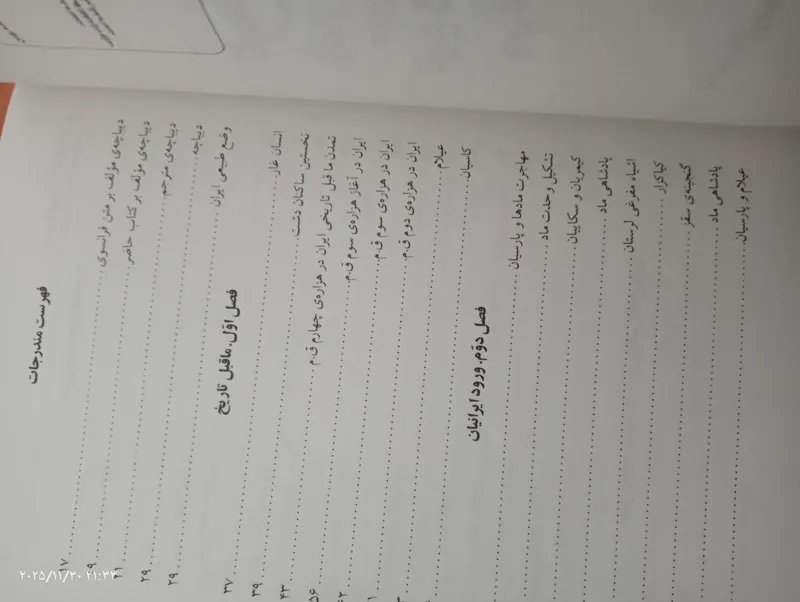 فهرست مندرجات
دیباچه‌ی مؤلف بر متن فرانسوی ........ ۱۷
دیباچه‌ی مؤلف بر کتاب حاضر ........
دیباچه‌ی مترجم ........ ۲۱
دیباچه ........ ۲۹
وضع طبیعی ایران ........ ۲۹
فصل اوّل. ماقبل تاریخ
انسان غار ........ ۳۷
نخستین ساکنان دشت ........ ۳۹
تمدن ما قبل تاریخی ایران در هزاره‌ی چهارم ق.م ........ ۴۳
ایران در آغاز هزاره‌ی سوم ق.م ........ ۵۶
ایران در هزاره‌ی سوم ق.م ........
ایران در هزاره‌ی دوم ق.م ........
عیلام ........
کاسیان ........
فصل دوّم. ورود ایرانیان
مهاجرت مادها و پارسیان ........
تشکیل وحدت ماد ........
کیمریان و سکاییان ........
پادشاهی ماد ........
اشیاء مفرغی لرستان ........
کیاکزار ........
گنجینه‌ی سقز ........
پادشاهی ماد ........
عیلام و پارسیان ........
۲۰۲۵/۱۱/۳۰ ۲۱:۳۳